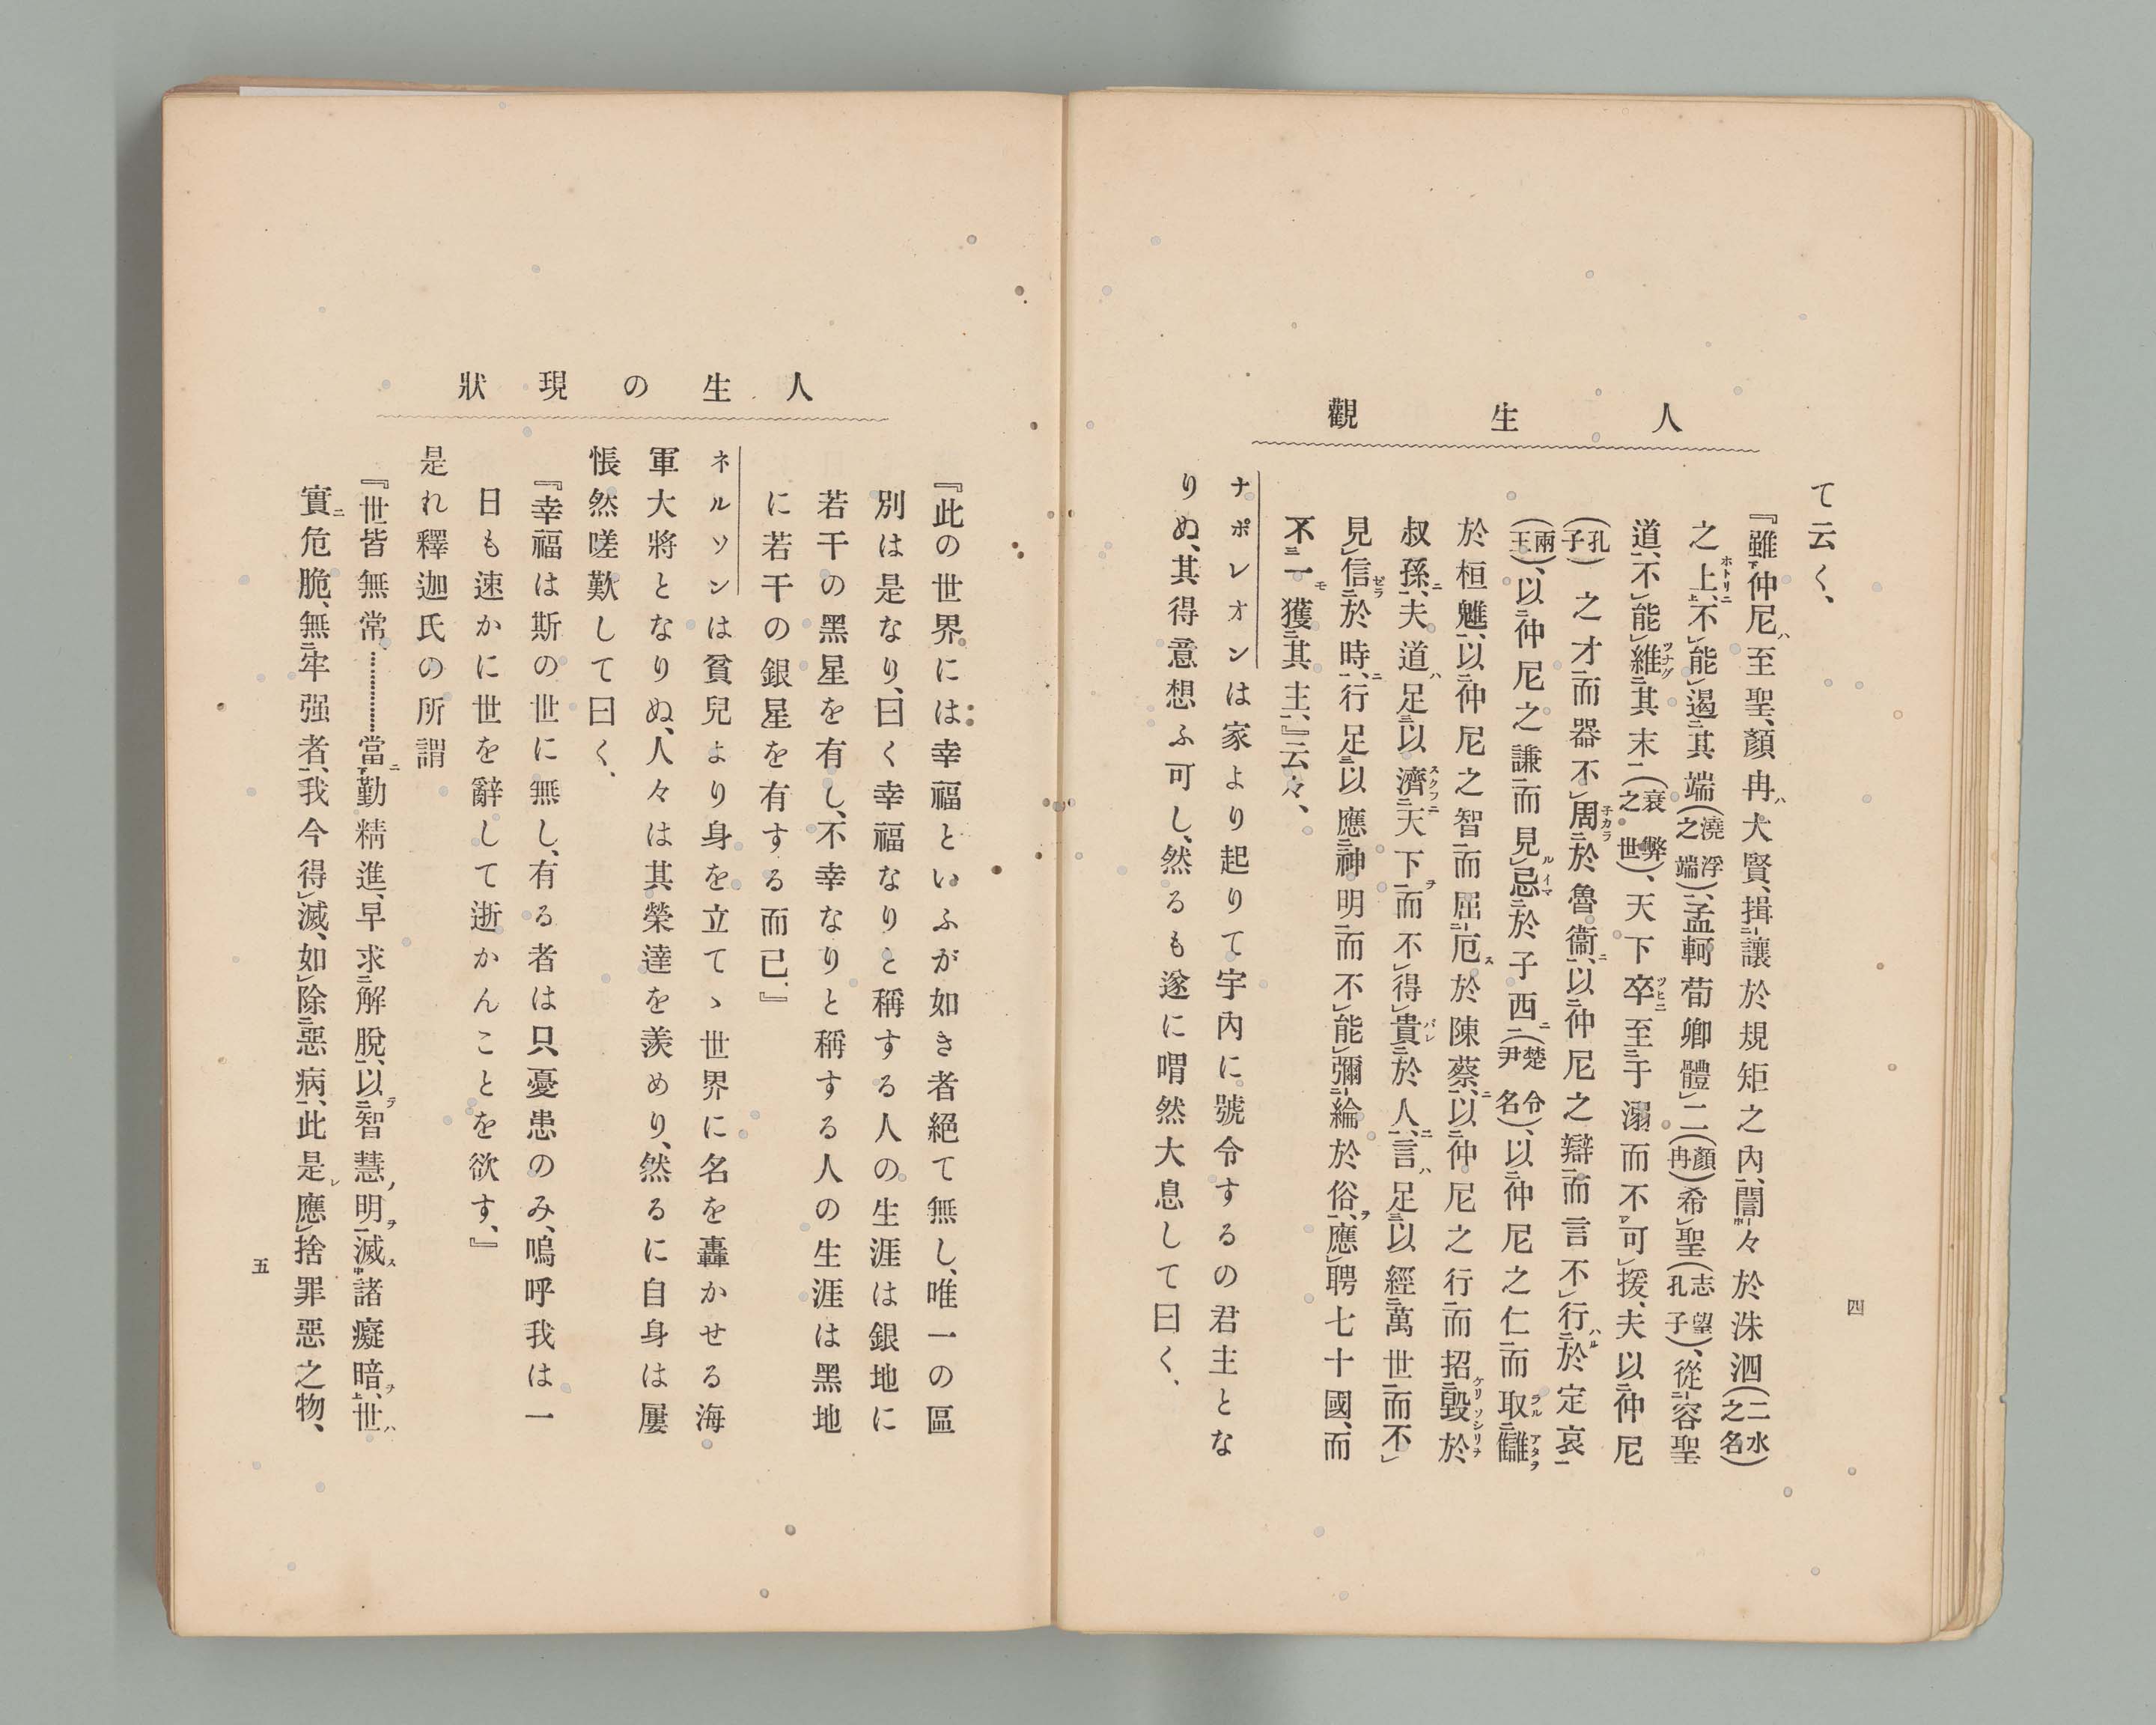 人生觀
四
て云く、
『雖仲尼至聖、顏冉大賢、揖讓於規矩之內、誾々於洙泗(二水之名)
之上、不能遏其端(澆浮之端)、孟軻荀卿體二(顏冉)希聖(志望孔子)、從容聖
道、不能維其末(衰弊之世)、天下卒至于溺而不可援、夫以仲尼
(孔子)之才而器不周於魯衞、以仲尼之辯而言不行於定哀
(兩王)、以仲尼之謙而見忌於子西(楚令尹名)、以仲尼之仁而取讎
於桓魋、以仲尼之智而屈厄於陳蔡、以仲尼之行而招毀於
叔孫、夫道足以濟天下而不得貴於人、言足以經萬世而不
見信於時、行足以應神明而不能彌綸於俗、應聘七十國、而
不一獲其主、』云々、
ナポレオンは家より起りて宇內に號令するの君主とな
りぬ、其得意想ふ可し、然るも遂に喟然大息して曰く、
人生の現狀
『此の世界には幸福といふが如き者絕て無し、唯一の區
別は是なり、曰く幸福なりと稱する人の生涯は銀地に
若干の黑星を有し、不幸なりと稱する人の生涯は黑地
に若干の銀星を有する而已、』
ネルソンは貧兒より身を立てゝ世界に名を轟かせる海
軍大將となりぬ、人々は其榮達を羨めり、然るに自身は屢
悵然嗟歎して曰く、
『幸福は斯の世に無し、有る者は只憂患のみ、嗚呼我は一
日も速かに世を辭して逝かんことを欲す、』
是れ釋迦氏の所謂
『世皆無常…………當勤精進、早求解脫、以智慧明滅諸癡暗、世
實危脆、無牢强者、我今得滅、如除惡病、此是應捨罪惡之物、
五